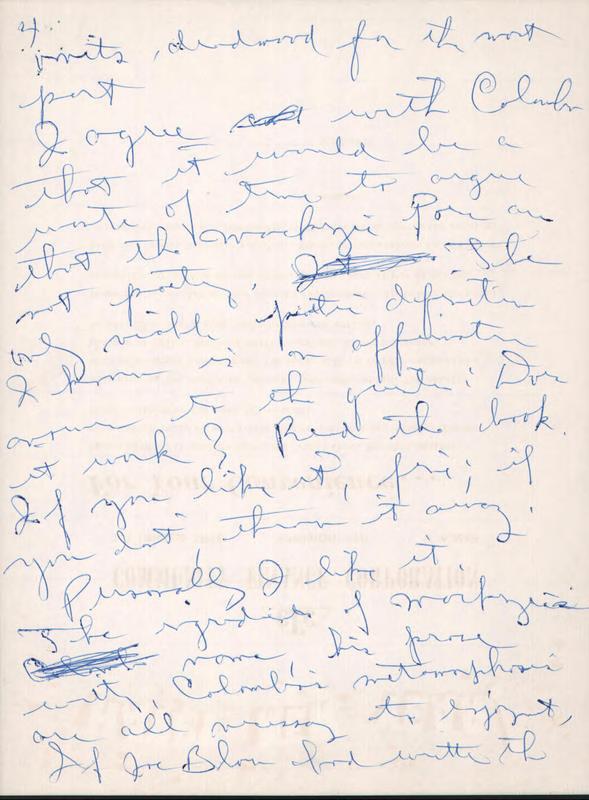 4.
, deadwood for the most
part
I agree with Colombo
that it would be a
waste of time to argue
that the Mackenzie Poems are
not poetry. The
only viable poetic definition
I know is an affirmative
answer to the question: Does
it work? Read the book.
If you like it, fine; if
you don't throw it away.
Personally, I like it.
The ingredients of Mackenzie's
name, his prose
with Colombo's metamorphosis
are all necessary to enjoyment,
If Joe Blow had written the